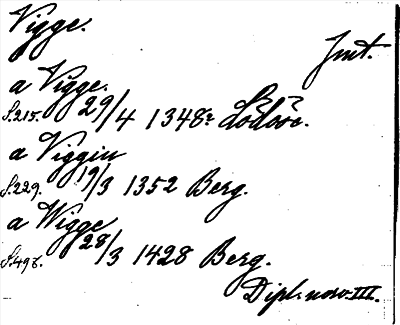 Vigge.
Jmt.
a Vigge.
S.215. 29/4 1348. Lödöse.
a Viggin
S.229. 19/3 1352 Berg.
a Wigge
S.498. 28/3 1428 Berg.
Dipl. norv. III.